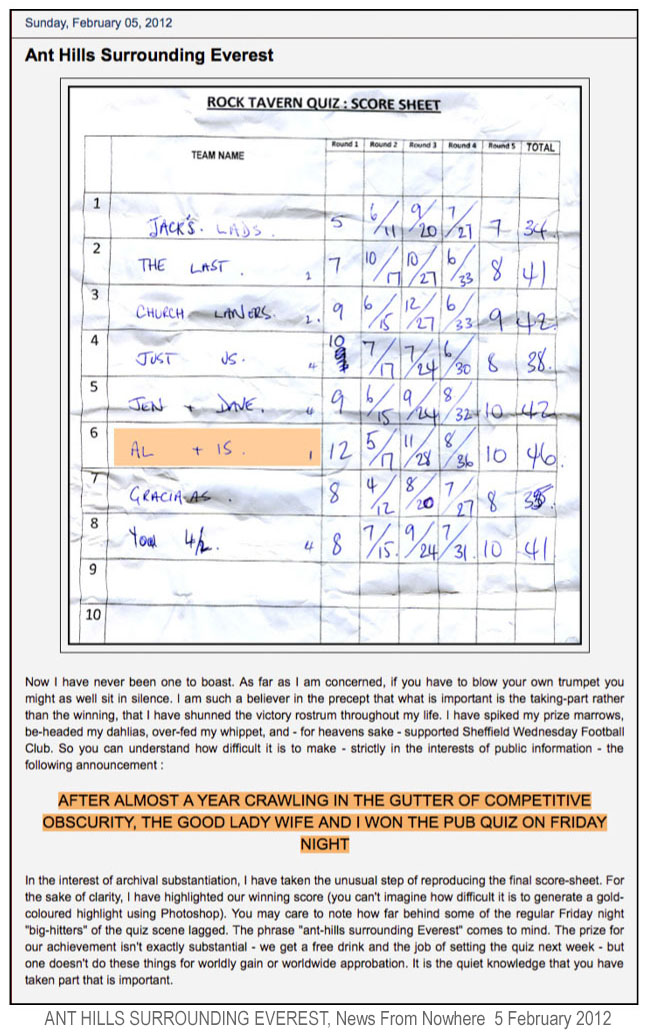 Sunday, February 05, 2012
Ant Hills Surrounding Everest
ROCK TAVERN QUIZ : SCORE SHEET
TEAM NAME Round 1 Round 2 Round 3 Round 4 Round 5 TOTAL
1 JACK'S. LADS. 5 6/11 9/20 7/27 7 34
2 THE LAST. 2 7 10/17 10/27 6/33 8 41
3 CHURCH LANERS. 2. 9 6/15 12/27 6/33 9 42
4 JUST US. 4 10 7/17 7/24 6/30 8 38.
5 JEN + DAVE. 4 9 6/15 9/24 8/32 10 42
6 AL + IS. 1 12 5/17 11/28 8/36 10 46.
7 GRACIAAS. 8 4/12 8/20 7/27 8
8 4/2. 4 8 7/15. 9/24 7/31. 10 41
9
10
Now I have never been one to boast. As far as I am concerned, if you have to blow your own trumpet you
might as well sit in silence. I am such a believer in the precept that what is important is the taking-part rather
than the winning, that I have shunned the victory rostrum throughout my life. I have spiked my prize marrows,
be-headed my dahlias, over-fed my whippet, and - for heavens sake - supported Sheffield Wednesday Football
Club. So you can understand how difficult it is to make - strictly in the interests of public information - the
following announcement :
AFTER ALMOST A YEAR CRAWLING IN THE GUTTER OF COMPETITIVE
OBSCURITY, THE GOOD LADY WIFE AND I WON THE PUB QUIZ ON FRIDAY
NIGHT
In the interest of archival substantiation, I have taken the unusual step of reproducing the final score-sheet. For
the sake of clarity, I have highlighted our winning score (you can't imagine how difficult it is to generate a gold-
coloured highlight using Photoshop). You may care to note how far behind some of the regular Friday night
"big-hitters" of the quiz scene lagged. The phrase "ant-hills surrounding Everest" comes to mind. The prize for
our achievement isn't exactly substantial - we get a free drink and the job of setting the quiz next week - but
one doesn't do these things for worldly gain or worldwide approbation. It is the quiet knowledge that you have
taken part that is important.
ANT HILLS SURROUNDING EVEREST, News From Nowhere 5 February 2012